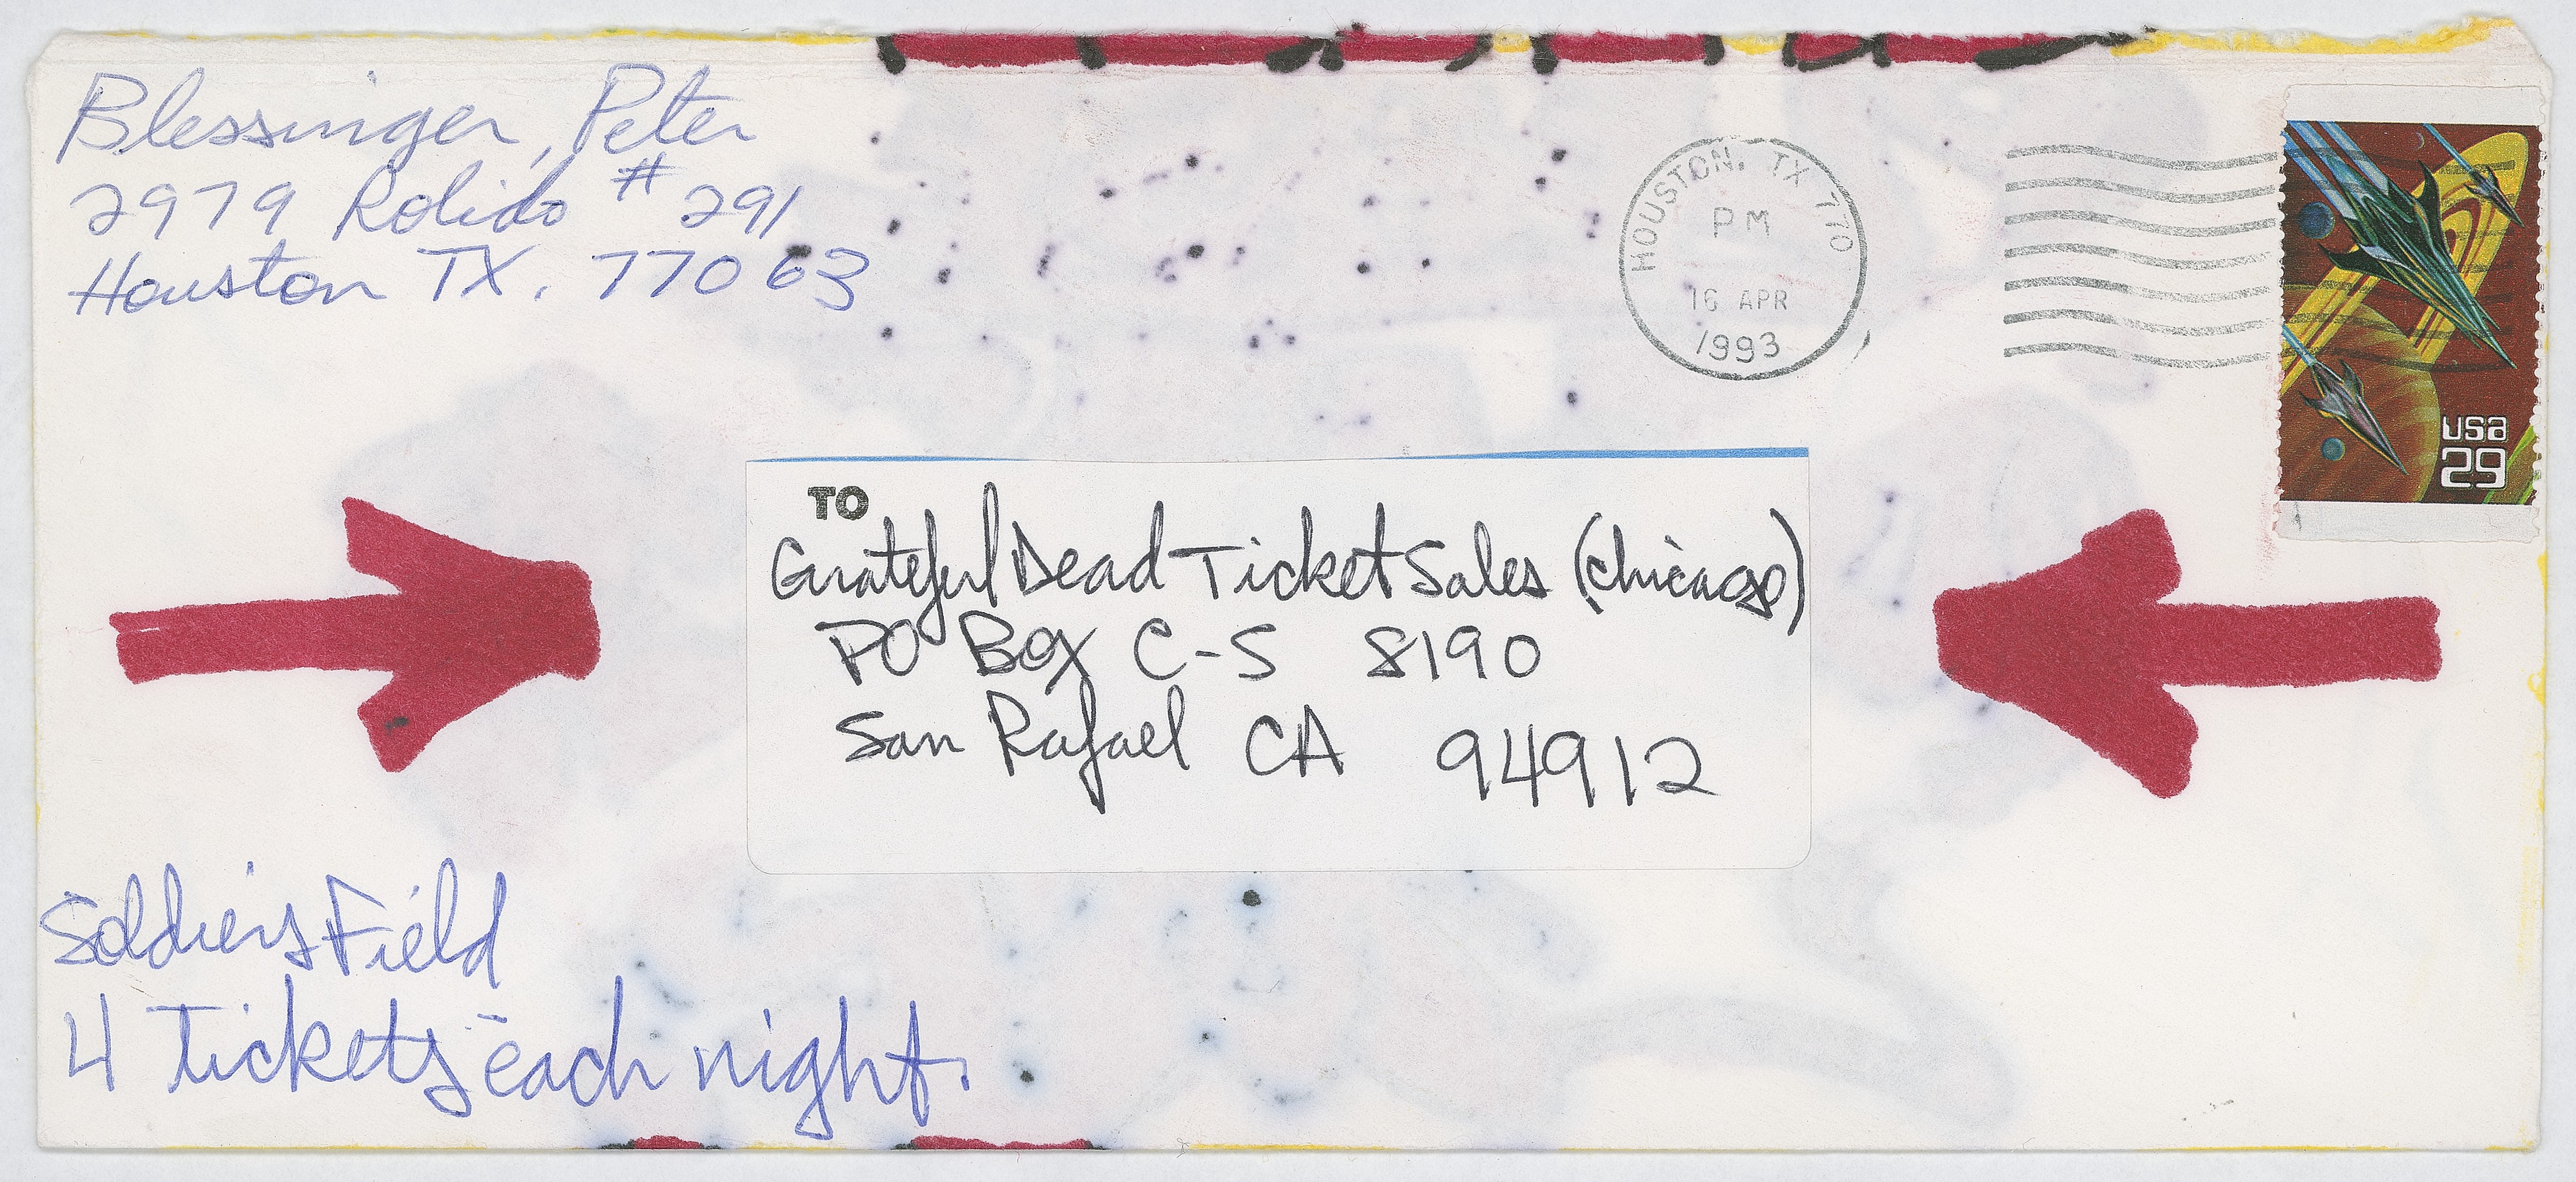 Blessinger, Peter
2979 Rolido #291
Houston TX. 77063
HOUSTON, TX 770
PM
16 APR
1993
usa
29
TO
Grateful Dead Ticket Sales (Chicago)
PO Box C-S 8190
San Rafael CA 94912
Soldiers Field
4 Tickets each night.